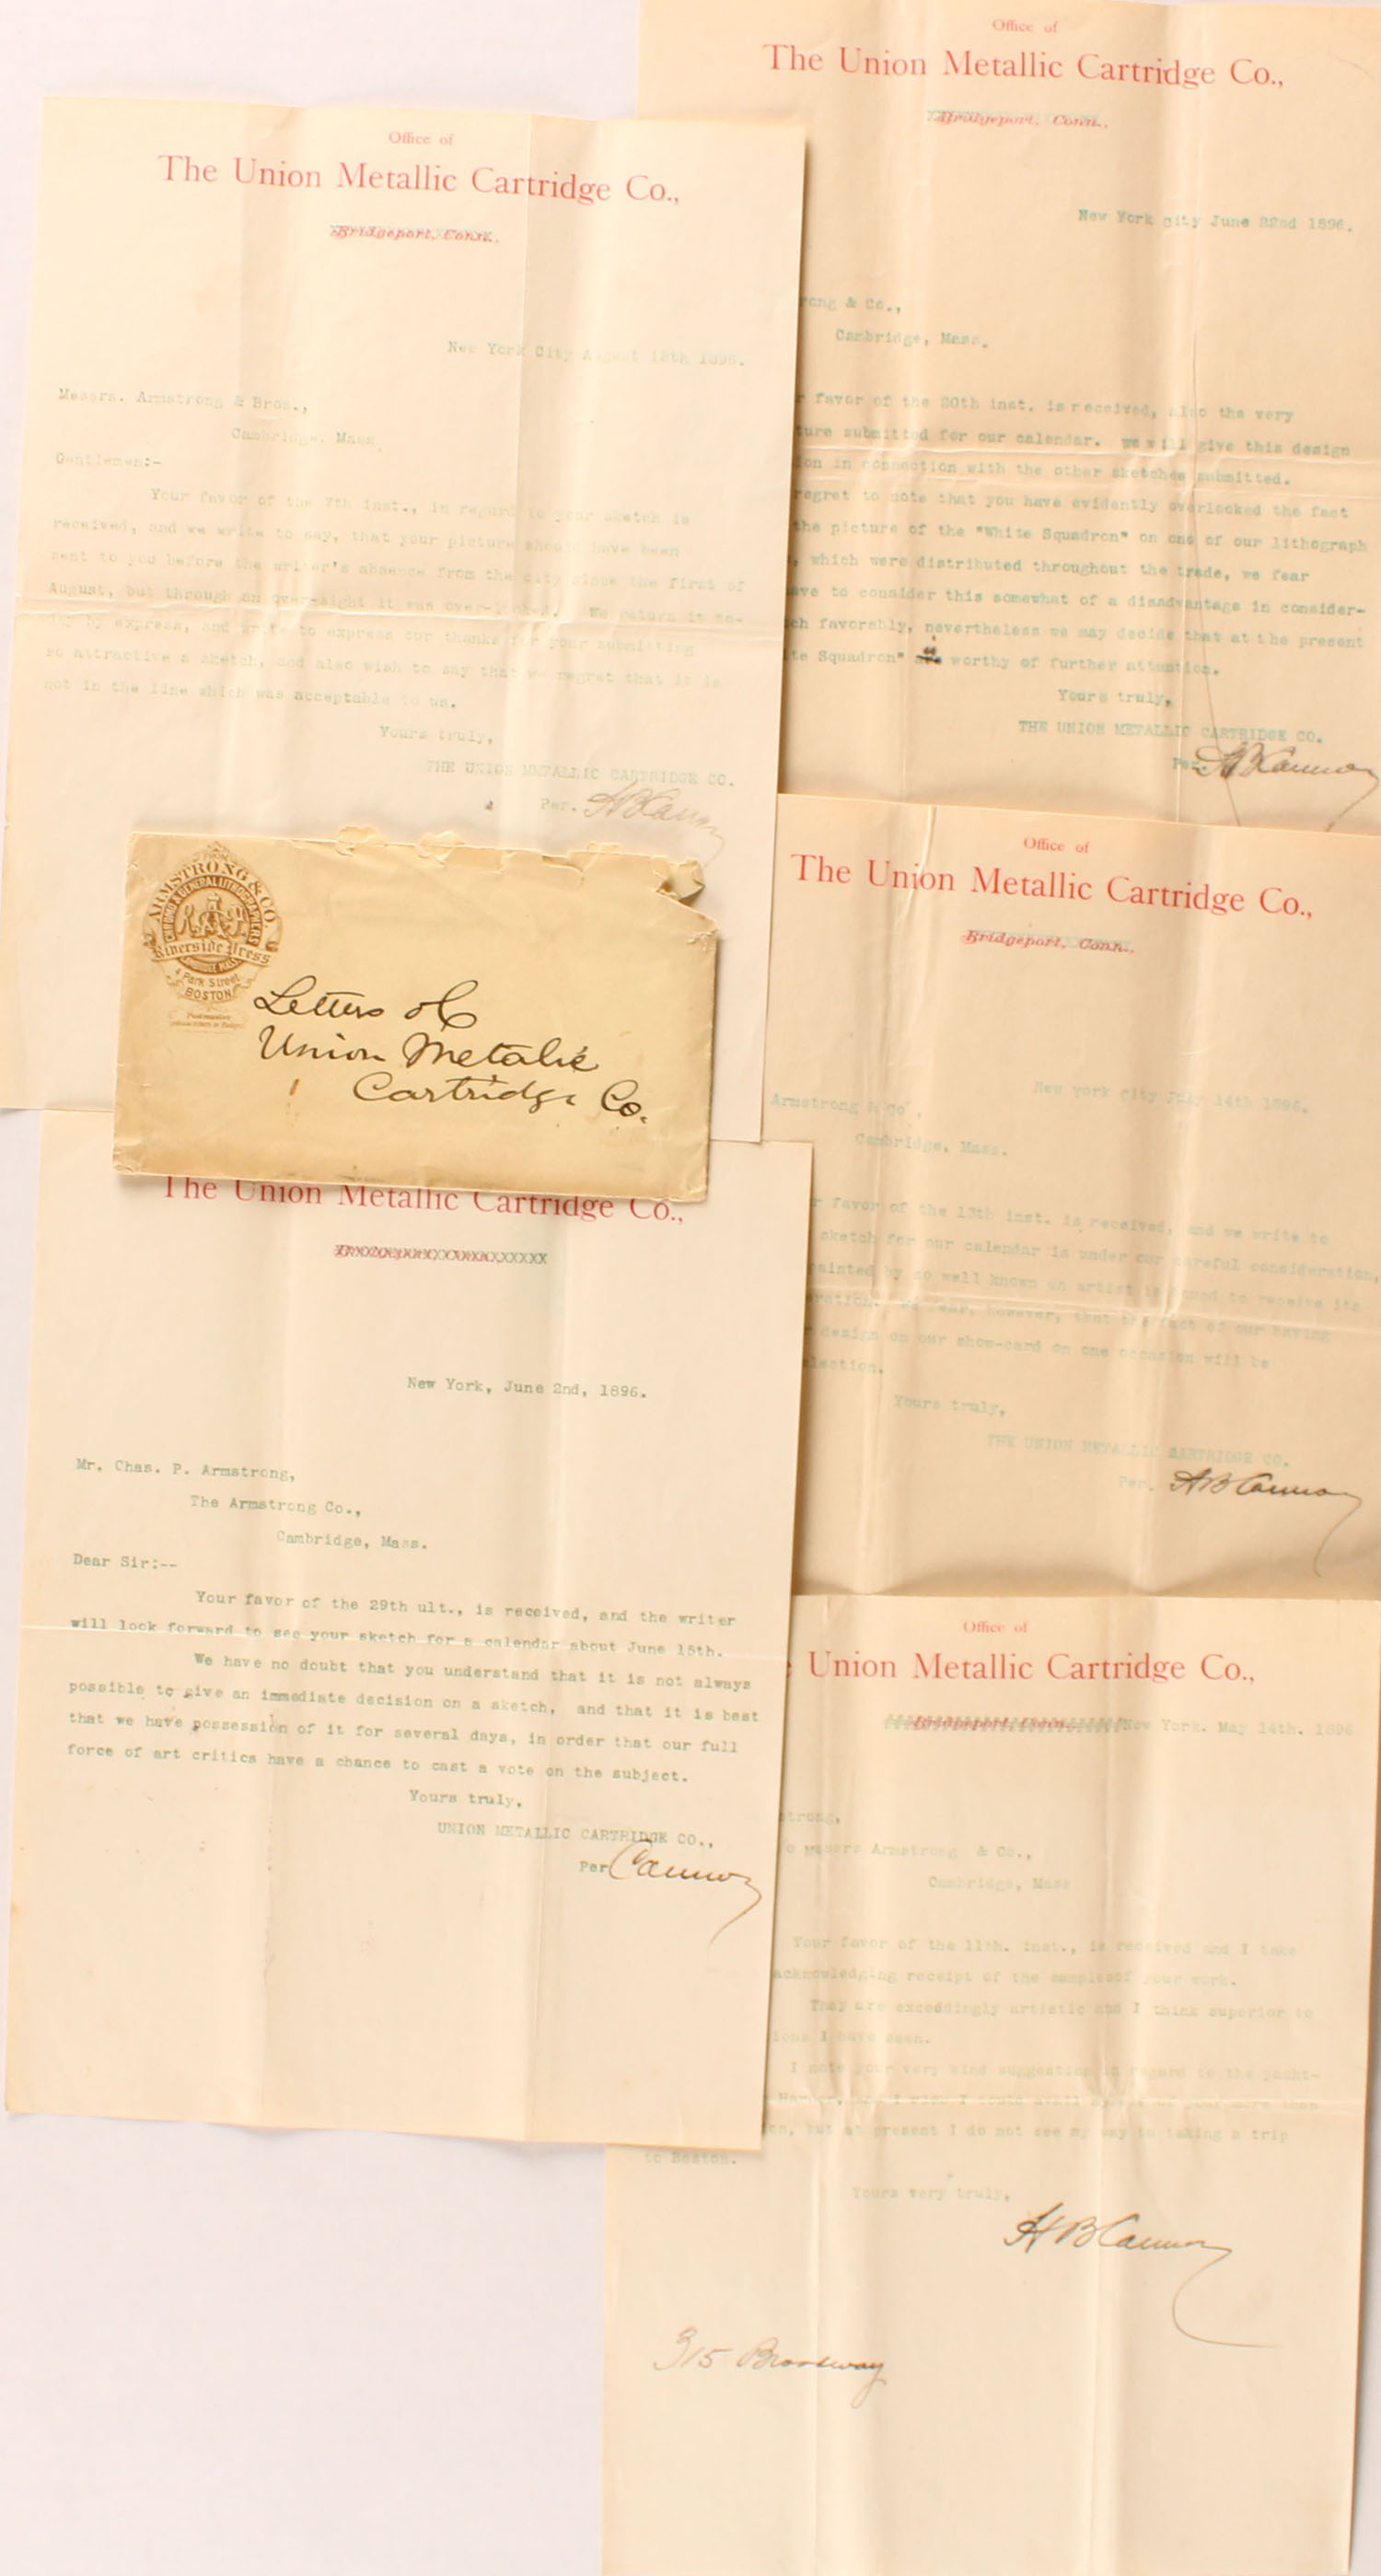 Office of
The Union Metallic Cartridge Co.,
Bridgeport, Conn.,
New York City August 18th 1896.
Messrs. Armstrong & Bros.,
Cambridge, Mass.
Gentlemen:-
Your favor of the 7th inst., in regard to your sketch is
received, and we write to say, that your picture should have been
sent to you before the writer's absence from the city since the first of
August, but through an over-sight it was over-looked. We return it to-
day by express, and write to express our thanks for your submitting
so attractive a sketch, and also wish to say that we regret that it is
not in the line which was acceptable to us.
Yours truly,
THE UNION METALLIC CARTRIDGE CO.
Per. HB Cannon
ARMSTRONG & CO.
CHROMO & GENERAL LITHOGRAPHERS
Riverside Press
CAMBRIDGE MASS.
4 Park Street
BOSTON
Letters of
Union Metalic
Cartridge Co.
The Union Metallic Cartridge Co.,
New York, June 2nd, 1896.
Mr. Chas. P. Armstrong,
The Armstrong Co.,
Cambridge, Mass.
Dear Sir:--
Your favor of the 29th ult., is received, and the writer
will look forward to see your sketch for a calendar about June 15th.
We have no doubt that you understand that it is not always
possible to give an immediate decision on a sketch, and that it is best
that we have possession of it for several days, in order that our full
force of art critics have a chance to cast a vote on the subject.
Yours truly,
UNION METALLIC CARTRIDGE CO.,
Per Cannon
Office of
The Union Metallic Cartridge Co.,
Bridgeport, Conn.,
New York city June 22nd 1896.
rong & Co.,
Cambridge, Mass.
r favor of the 20th inst. is received, also the very
ture submitted for our calendar. we will give this design
ion in connection with the other sketches submitted.
regret to note that you have evidently overlooked the fact
the picture of the "White Squadron" on one of our lithograph
, which were distributed throughout the trade, we fear
ave to consider this somewhat of a disadvantage in consider-
ch favorably, nevertheless we may decide that at the present
te Squadron" worthy of further attention.
Yours truly,
THE UNION METALLIC CARTRIDGE CO.
Per. HB Cannon
Office of
The Union Metallic Cartridge Co.,
Bridgeport, Conn.,
New york city July 14th 1896.
Armstrong & Co.,
Cambridge, Mass.
r favor of the 13th inst. is received, and we write to
sketch for our calendar is under our careful consideration,
painted by so well known an artist is bound to receive its
eration. We fear, however, that the fact of our having
design on our show-card on one occasion will be
lection.
Yours truly,
THE UNION METALLIC CARTRIDGE CO.
Per. HB Cannon
Office of
Union Metallic Cartridge Co.,
Bridgeport, Conn. New York. May 14th. 1896
strong,
Messrs Armstrong & Co.,
Cambridge, Mass
Your favor of the 11th. inst., is received and I take
acknowledging receipt of the samplesof your work.
They are exceedingly artistic and I think superior to
ions I have seen.
I note your very kind suggestion in regard to the yacht-
I wish I could avail
on, but at present I do not see my way to taking a trip
to Boston.
Yours very truly,
HB Cannon
315 Broadway